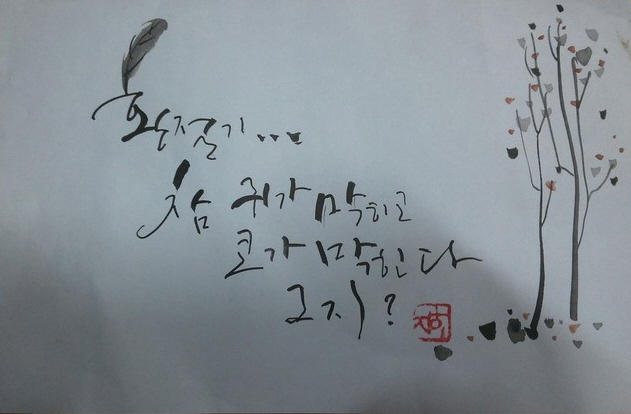 환절기...
참 귀가 막히고
코가 막힌다
그지?